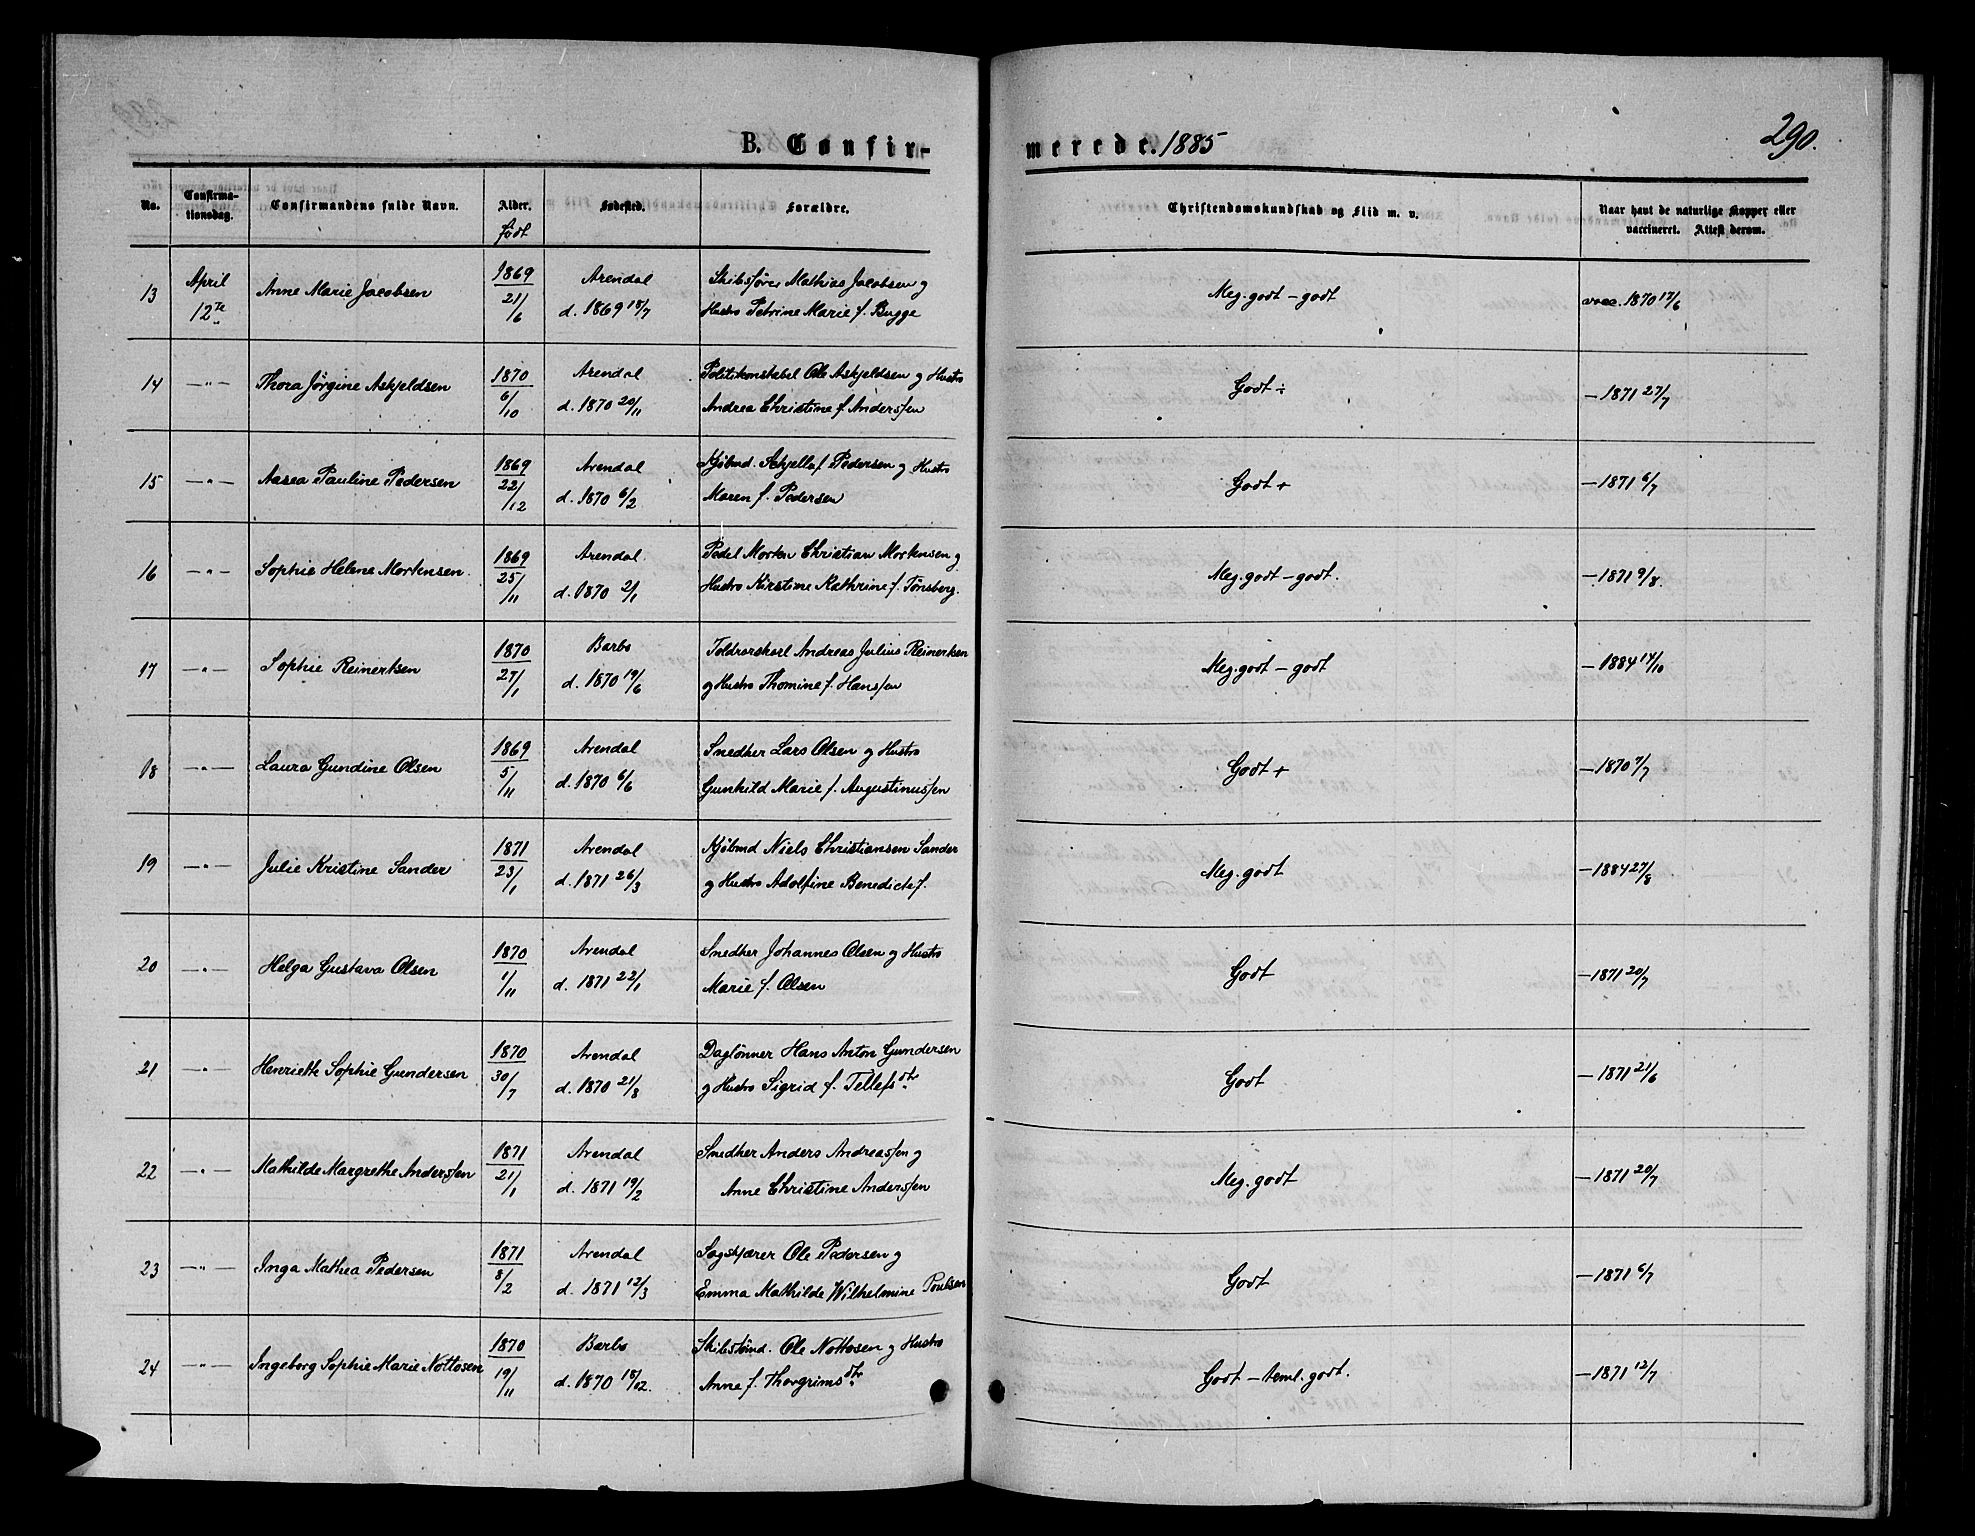 B. Confir-
merede. 1885
290.
No.
Confirma-
tionsdag.
Confirmandens fulde Navn.
Alder.
født
Fødested.
Forældre.
Christendomskundskab og Flid m. v.
Naar havt de naturlige Kopper eller
vaccineret. Attest derom.
13 April 12te Anne Marie Jacobsen 1869 21/6 Arendal d. 1869 18/7 Skibsfører Mathias Jacobsen og
Hustro Petrine Marie f. Bugge Meg. godt - godt vacc. 1870 17/6
14 —"— Thora Jørgine Askjeldsen 1870 6/10 Arendal d. 1870 20/11 Politikonstabel Ole Askjeldsen og Hustro
Andrea Christine f. Anderssen Godt ÷ — 1871 27/7
15 —"— Aasea Pauline Pedersen 1869 22/12 Arendal d. 1870 6/2 Kjøbmd. Pedersen og Hustro
Maren f. Pedersen Godt + — 1871 6/7
16 —"— Sophie Helene Mortensen 1869 25/11 Arendal d. 1870 2/1 Pedel Morten Christian Mortensen og
Hustro Kirstine Kathrine f. Tønsberg. Meg. godt - godt. — 1871 9/8.
17 —"— Sophie Reinertsen 1870 27/1 Barbo d. 1870 19/6 Toldrorskarl Andreas Julius Reinertsen
og Hustro Thomine f. Hanssen Meg. godt - godt — 1884 14/10
18 —"— Laura Gundine Olsen 1869 5/11 Arendal d. 1870 6/6 Snedker Lars Olsen og Hustro
Gunhild Marie f. Augustinussen Godt + — 1870 7/7
19 —"— Julie Kristine Sander 1871 23/1 Arendal d. 1871 26/3 Kjøbmd Niels Christiansen Sander
og Hustro Adolfine Benedicte f. Meg. godt — 1884 27/8
20 —"— Helga Gustava Olsen 1870 1/11 Arendal d. 1871 22/1 Snedker Johannes Olsen og Hustro
Marie f. Olsen Godt — 1871 20/7
21 —"— Henriette Sophie Gundersen 1870 30/7 Arendal d. 1870 21/8 Daglønner Hans Anton Gundersen
og Hustro Sigrid f. Tellefsdtr Godt — 1871 21/6
22 —"— Mathilde Margrethe Anderssen 1871 21/1 Arendal d. 1871 19/2 Snedker Anders Andreassen og
Anne Christine Anderssen Meg. godt — 1871 20/7
23 —"— Inga Mathea Pedersen 1871 8/2 Arendal d. 1871 12/3 Sagskjærer Ole Pedersen og
Emma Mathilde Wilhelmine Poulsen Godt — 1871 6/7
24 —"— Ingeborg Sophie Marie Nottosen 1870 19/11 Barbo d. 1870 18/12. Skibstømd. Ole Nottosen og Hustro
Anne f. Thorgrimsdtr Godt - teml. godt. — 1871 12/7